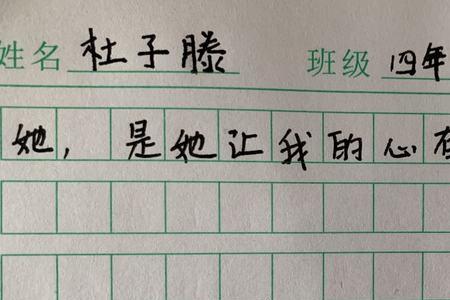 姓名 杜子滕 班级 四年
她，是她让我的心在